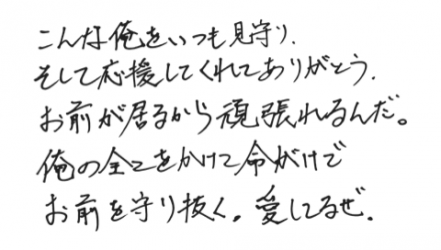 こんな俺をいつも見守り、
そして応援してくれてありがとう。
お前が居るから頑張れるんだ。
俺の全てをかけて命がけで
お前を守り抜く。愛してるぜ。